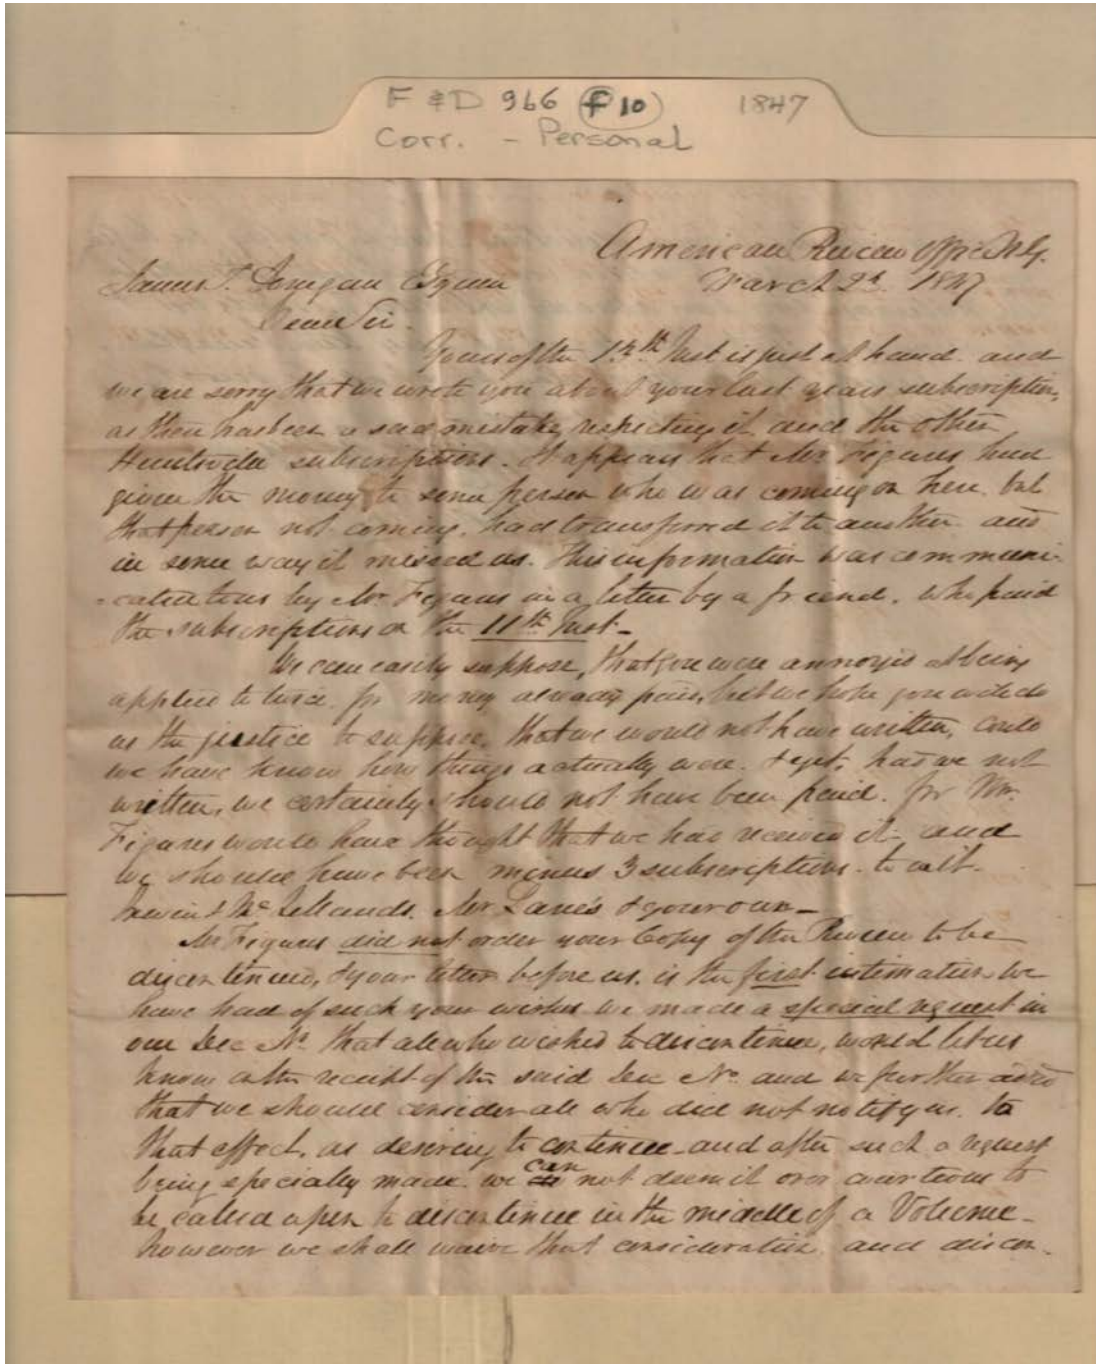 F & D 966 f10 1847
Corr. - Personal
American Review Office N.Y.
March 2d 1847
James J. Donegan Esquire
Dear Sir.
Yours of the 13th Inst is just at hand. and
we are sorry that we wrote you about your last years subscription,
as there has been a sad mistake respecting it and the other
Huntsville subscriptions. It appears that Mr Figures had
given the money to some person who was coming on here, but
that person not coming, had transferred it to another and
in some way it missed us. This information was communi-
-cated to us by Mr Figures in a letter by a friend, who paid
the subscriptions on the 11th Inst-
We can easily suppose, that you were annoyed at being
applied to twice for money already paid, but we hope you will do
us the justice to suppose, that we would not have written, could
we have known how things actually were. & yet, had we not
written, we certainly should not have been paid. for Mr.
Figures would have thought that we had received it and
we should have been minus 3 subscriptions. to wit-
Mr Lane's & your own-
Mr Figures did not order your Copy of the Review to be
discontinued, & your letter before us, is the first intimation we
have had of such your wishes we made a special request in
our Dec No. that all who wished to discontinue, would let us
know on the receipt of the said Dec No. and we further added
that we should consider all who did not notify us. to
that effect, as desiring to continue - and after such a request
being specially made. we can not deem it over courteous to
be called upon to discontinue in the middle of a Volume-
however we shall waive that consideration and discon-